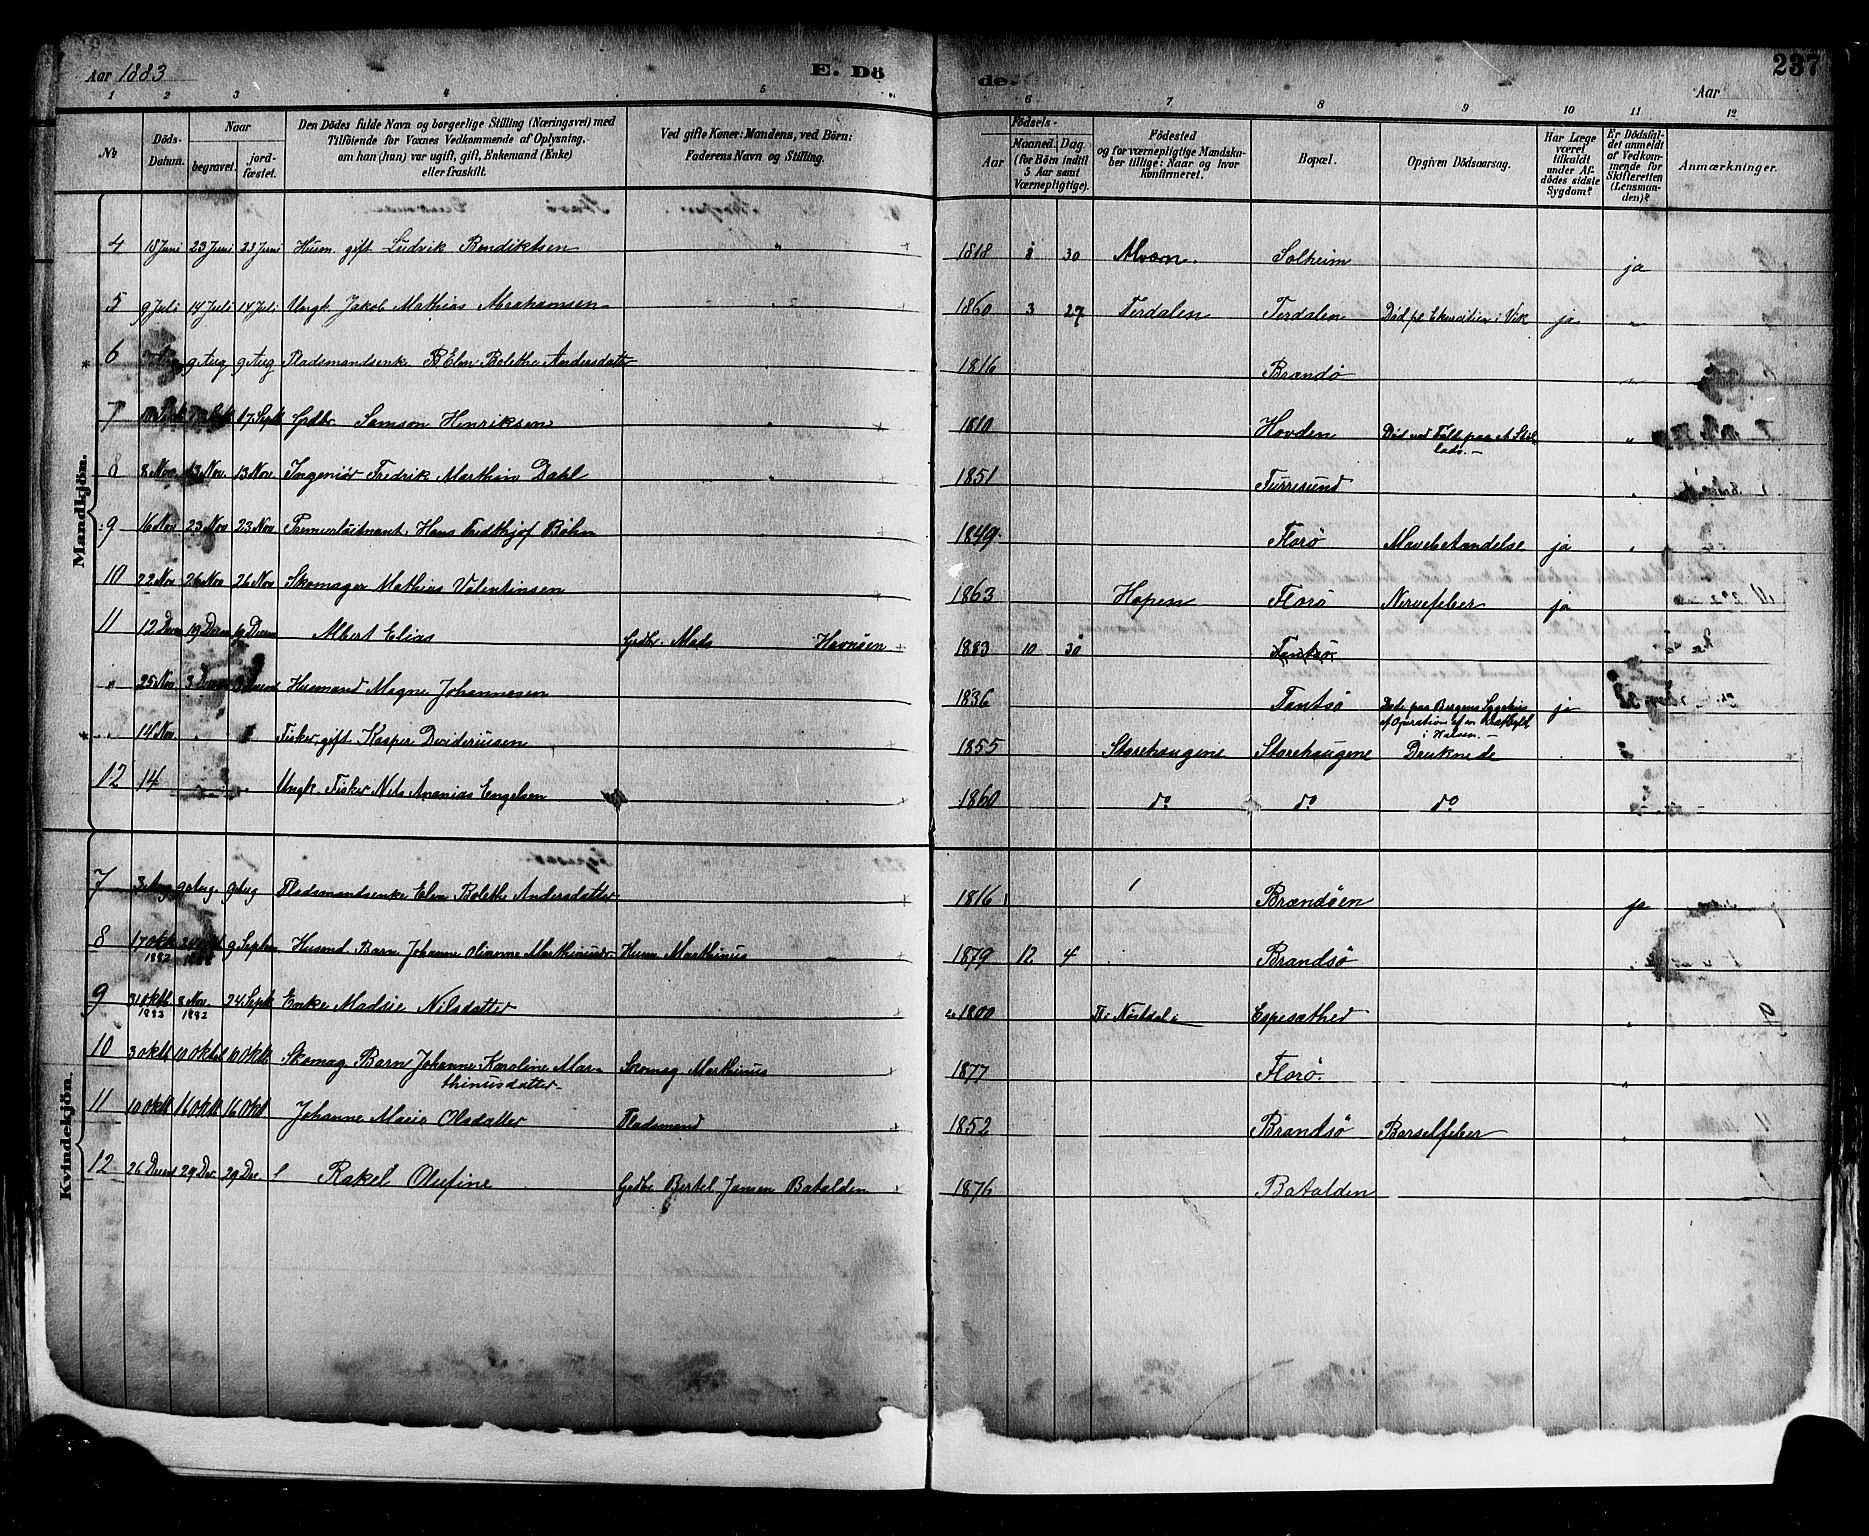 Aar 1883 E. Dö de. Aar 237
1 2 3 4 5 6 7 8 9 10 11 12
№ Döds-Datum. Naar begravet. jordfæstet. Den Dödes fulde Navn og borgerlige Stilling (Næringsvei) med Tilföiende for Voxnes Vedkommende af Oplysning, om han (hun) var ugift, gift, Enkemand (Enke) eller fraskilt. Ved gifte Koner: Mandens, ved Börn: Faderens Navn og Stilling. Födsels- Aar Maaned. Dag. (for Börn indtil 5 Aar samt Værnepligtige). Födested og for værnepligtige Mandskaber tillige: Naar og hvor konfirmeret. Bopæl. Opgiven Dödsaarsag. Har Læge været tilkaldt under Afdödes sidste Sygdom? Er Dödsfaldet anmeldt af Vedkommende for Skifteretten (Lensmanden)? Anmærkninger.
Mandkjön.
4 18 Juni 23 Juni 23 Juni Husm. gift Ludvik Bendiktsen " 1818 8 30 Alvørn. Solheim ja
5 9 Juli 14 Juli 14 Juli Ungk. Jakob Mathias Abrahamsen " 1860 3 27 Terdalen Terdalen Død på Ekercitien i Vik ja "
* 6 9 Aug 9 Aug Pladsmandsenk Elen Bolethe Andersdatter 1816 Brandø "
7 17 Sept Grdbr. Samson Henriksen " 1810 Hovden Død ved Fald paa et Stillads. "
8 8 Nov. 13 Nov. 13 Nov. Ingeniør Fredrik Marthin Dahl " 1851 Furresund "
9 16 Nov 23 Nov 23 Nov Premierløitnant, Hans Fredthjof Böhn 1849 Florø Mavebetændelse ja "
10 22 Nov 26 Nov 26 Nov Skomager Mathias Valentinsen 1863 Hopen Florø Nervefeber ja
11 12 Decm 19 Decm 19 Decm Albert Elias Grdbr. Mads Havnsen 1883 10 30 Tantsø
" 25 Nov. 3 Husmand Magne Johannesen 1836 Tantsø Døde paa Bergens Sygehus af Operation af en i Halsen. ja
* " 14 Nov. " " Fisker, gift Kasper Deideriusen 1855 Storehaugene Storehaugene Druknede
12 14 Ungk. Fisker Nils Ananias Engelsen 1860 do do do
Kvindekjön.
7 3 Aug 9 Aug. 9 Aug Pladsmandsenke Elen Bolethe Andersdatter 1816 Brandsøen ja
8 17 Okt 1882 24 Okt 1882 9 Septm Husmd. Barn Johanne Oliverne Marthinusdr Husm Marthinus 1879 12 4 Brandsø "
9 31 Oktb. 1882 8 Nov. 1882 24 Septb Enke Madsie Nilsdatter 1800 Nordal Espesæthed "
10 3 Oktb 10 Oktb 10 Oktb Skomag Barn Johanne Karoline Marthinusdatter Skomag Marthinus 1877 Florø. "
11 10 Oktb 16 Oktb 16 Oktb Johanne Marie Olsdatter Pladsmand 1852 Brandsø Barselfeber "
12 26 Decmb 29 Dec. 29 Dec Rakel Olufine Grdbr Bertel Jansen Batalden 1876 Batalden